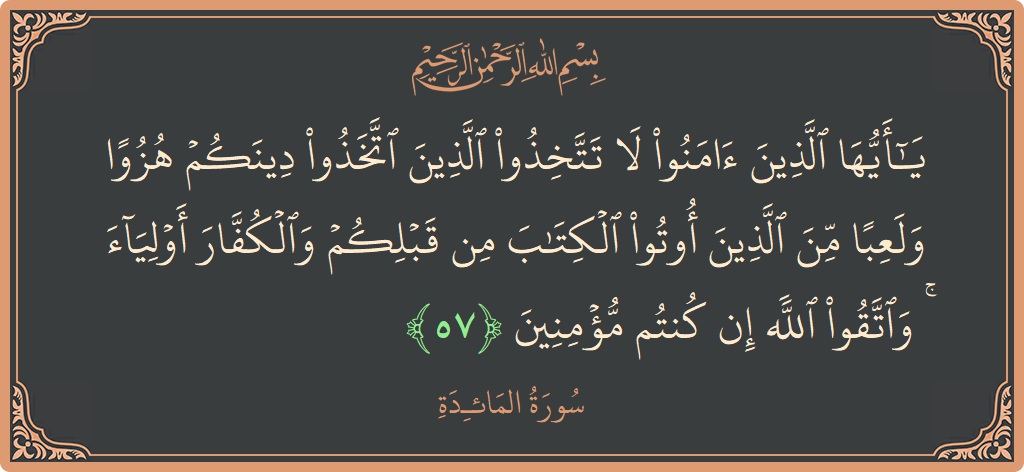 بِسْمِ اللهِ الرَّحْمٰنِ الرَّحِيْمِ
يَـٰٓأَيُّهَا ٱلَّذِينَ ءَامَنُوا۟ لَا تَتَّخِذُوا۟ ٱلَّذِينَ ٱتَّخَذُوا۟ دِينَكُمْ هُزُوًا
وَلَعِبًا مِّنَ ٱلَّذِينَ أُوتُوا۟ ٱلْكِتَـٰبَ مِن قَبْلِكُمْ وَٱلْكُفَّارَ أَوْلِيَآءَ
ۚ وَٱتَّقُوا۟ ٱللَّهَ إِن كُنتُم مُّؤْمِنِينَ ﴿٥٧﴾
سُورَةُ المَائـِدَةِ